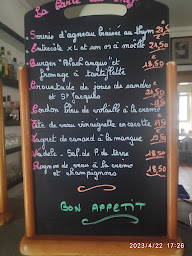 La Carte du Chef
Souris d'agneau braisée au thym 21,50
Entrecôte XL et son os à moelle
Burger "Aband anque" et 18,50
fromage à tartiflette
Croustade de joues de sandre
et St Jacques
Cordon bleu de volaille à la crème
Tête de veau vinaigrette en cocotte
Magret de canard à la mangue
Salade. Sal. de P. de terre 18,50
Rognon de veau à la crème 18,50
et champignons
BON APPETIT
2023/4/22 17:26